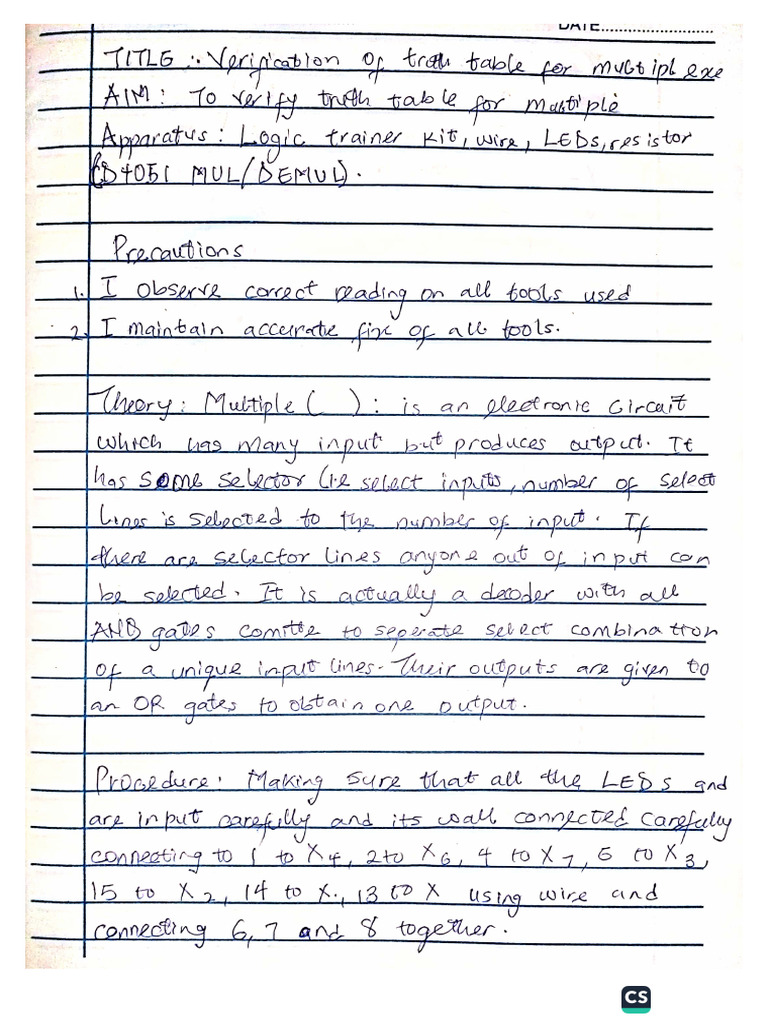 DATE........................
TITLE :. Verification of troth table for multipl exe
AIM: To verify truth table for multiple
Apparatus: Logic trainer kit, wire, LEDs, resistor
CD4051 MUL/DEMUL).
Precautions
1. I observe correct reading on all tools used
2. I maintain accurate fix of all tools.
Theory: Multiple ( ): is an electronic circuit
which has many input but produces output. It
has some selector (i.e select inputs, number of select
lines is selected to the number of input. If
there are selector lines anyone out of input can
be selected. It is actually a decoder with all
AND gates comitte to seperate select combination
of a unique input lines. Their outputs are given to
an OR gates to obtain one output.
Procedure: Making sure that all the LEDs and
are input carefully and its wall connected carefully
connecting to 1 to X4, 2 to X6, 4 to X7, 5 to X3,
15 to X2, 14 to X., 13 to X using wire and
connecting 6, 7 and 8 together.
CS